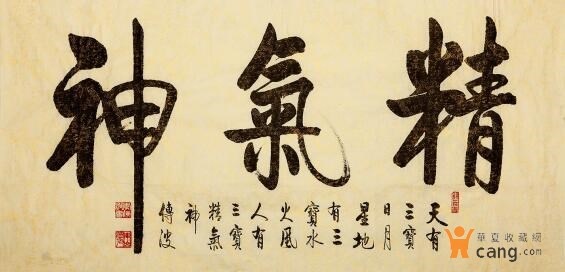 精氣神
天有
三寶
日月
星地
有三
寶水
火風
人有
三寶
精氣
神
華夏收藏網
cang.com